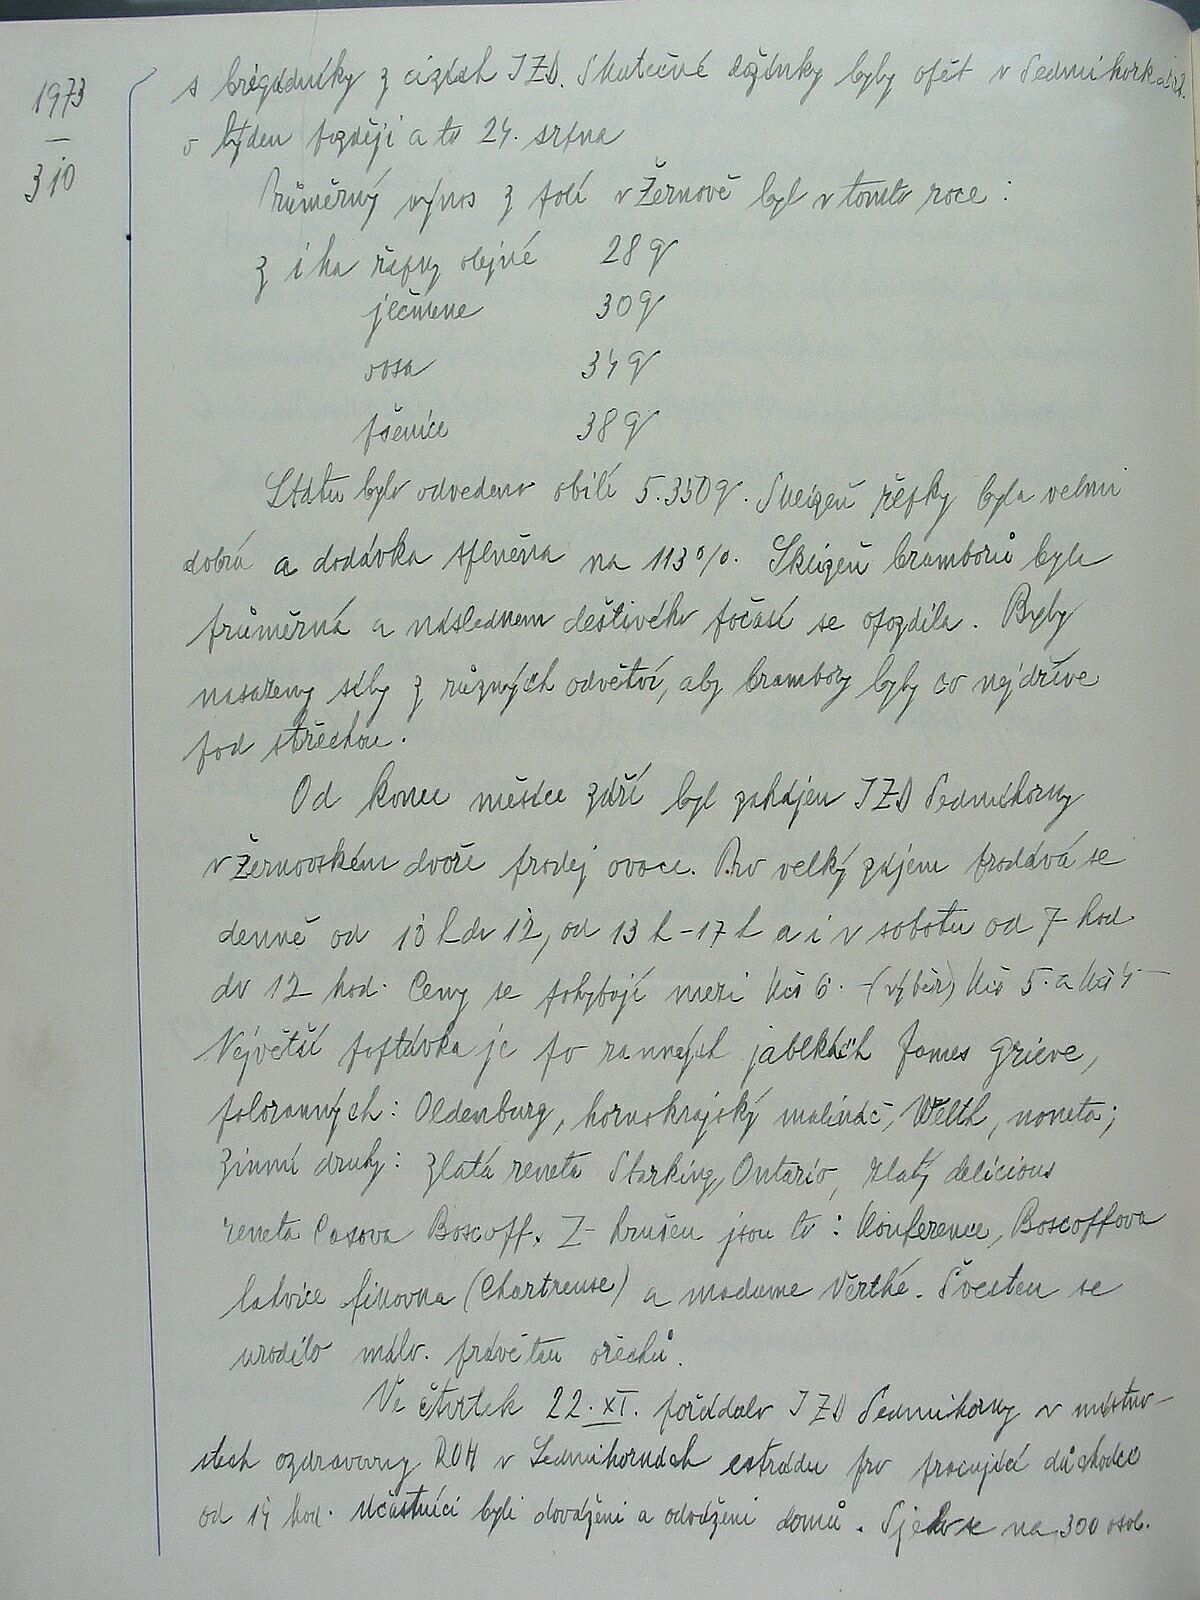 1973
310
s brigádníky z cizích JZD. Skutečné dožínky byly opět v Sedmihorkách
o týden později a to 24. srpna
Průměrný výnos z polí v Žernově byl v tomto roce :
z 1 ha řepky olejné 28 q
ječmene 30 q
ovsa 34 q
pšenice 38 q
Státu bylo odvedeno obilí 5.350 q. Sklizeň řepky byla velmi
dobrá a dodávka splněna na 113 %. Sklizeň bramborů byla
průměrná a následkem deštivého počasí se opozdila. Byly
nasazeny síly z různých odvětví, aby brambory byly co nejdříve
pod střechou.
Od konce měsíce září byl zahájen JZD Sedmihorky
v Žernovském dvoře prodej ovoce. Pro velký zájem prodává se
denně od 10 h do 12, od 13 h - 17 h a i v sobotu od 7 hod
do 12 hod. Ceny se pohybují mezi Kčs 6.- (výběr) Kčs 5.- a Kčs 4-
Největší poptávka je po ranných jablkách James Grieve,
poloranných: Oldenburg, hornokrajský malináč, Welth, noneta;
zimní druhy: zlatá reneta Starking, Ontario, zlatý delicious
reneta Coxova Boscoff. Z hrušen jsou to : Konference, Boscoffova
lahvice, (Chartreuse) a madame Verthé. Švestek se
urodilo málo. právě tak ořechů.
Ve čtvrtek 22. XI. pořádalo JZD Sedmihorky v místno-
stech ozdravovny ROH v Sedmihorkách estrádu pro pracující důchodce
od 14 hod. Účastníci byli dováženi a odváženi domů. Sjelo se na 300 osob.